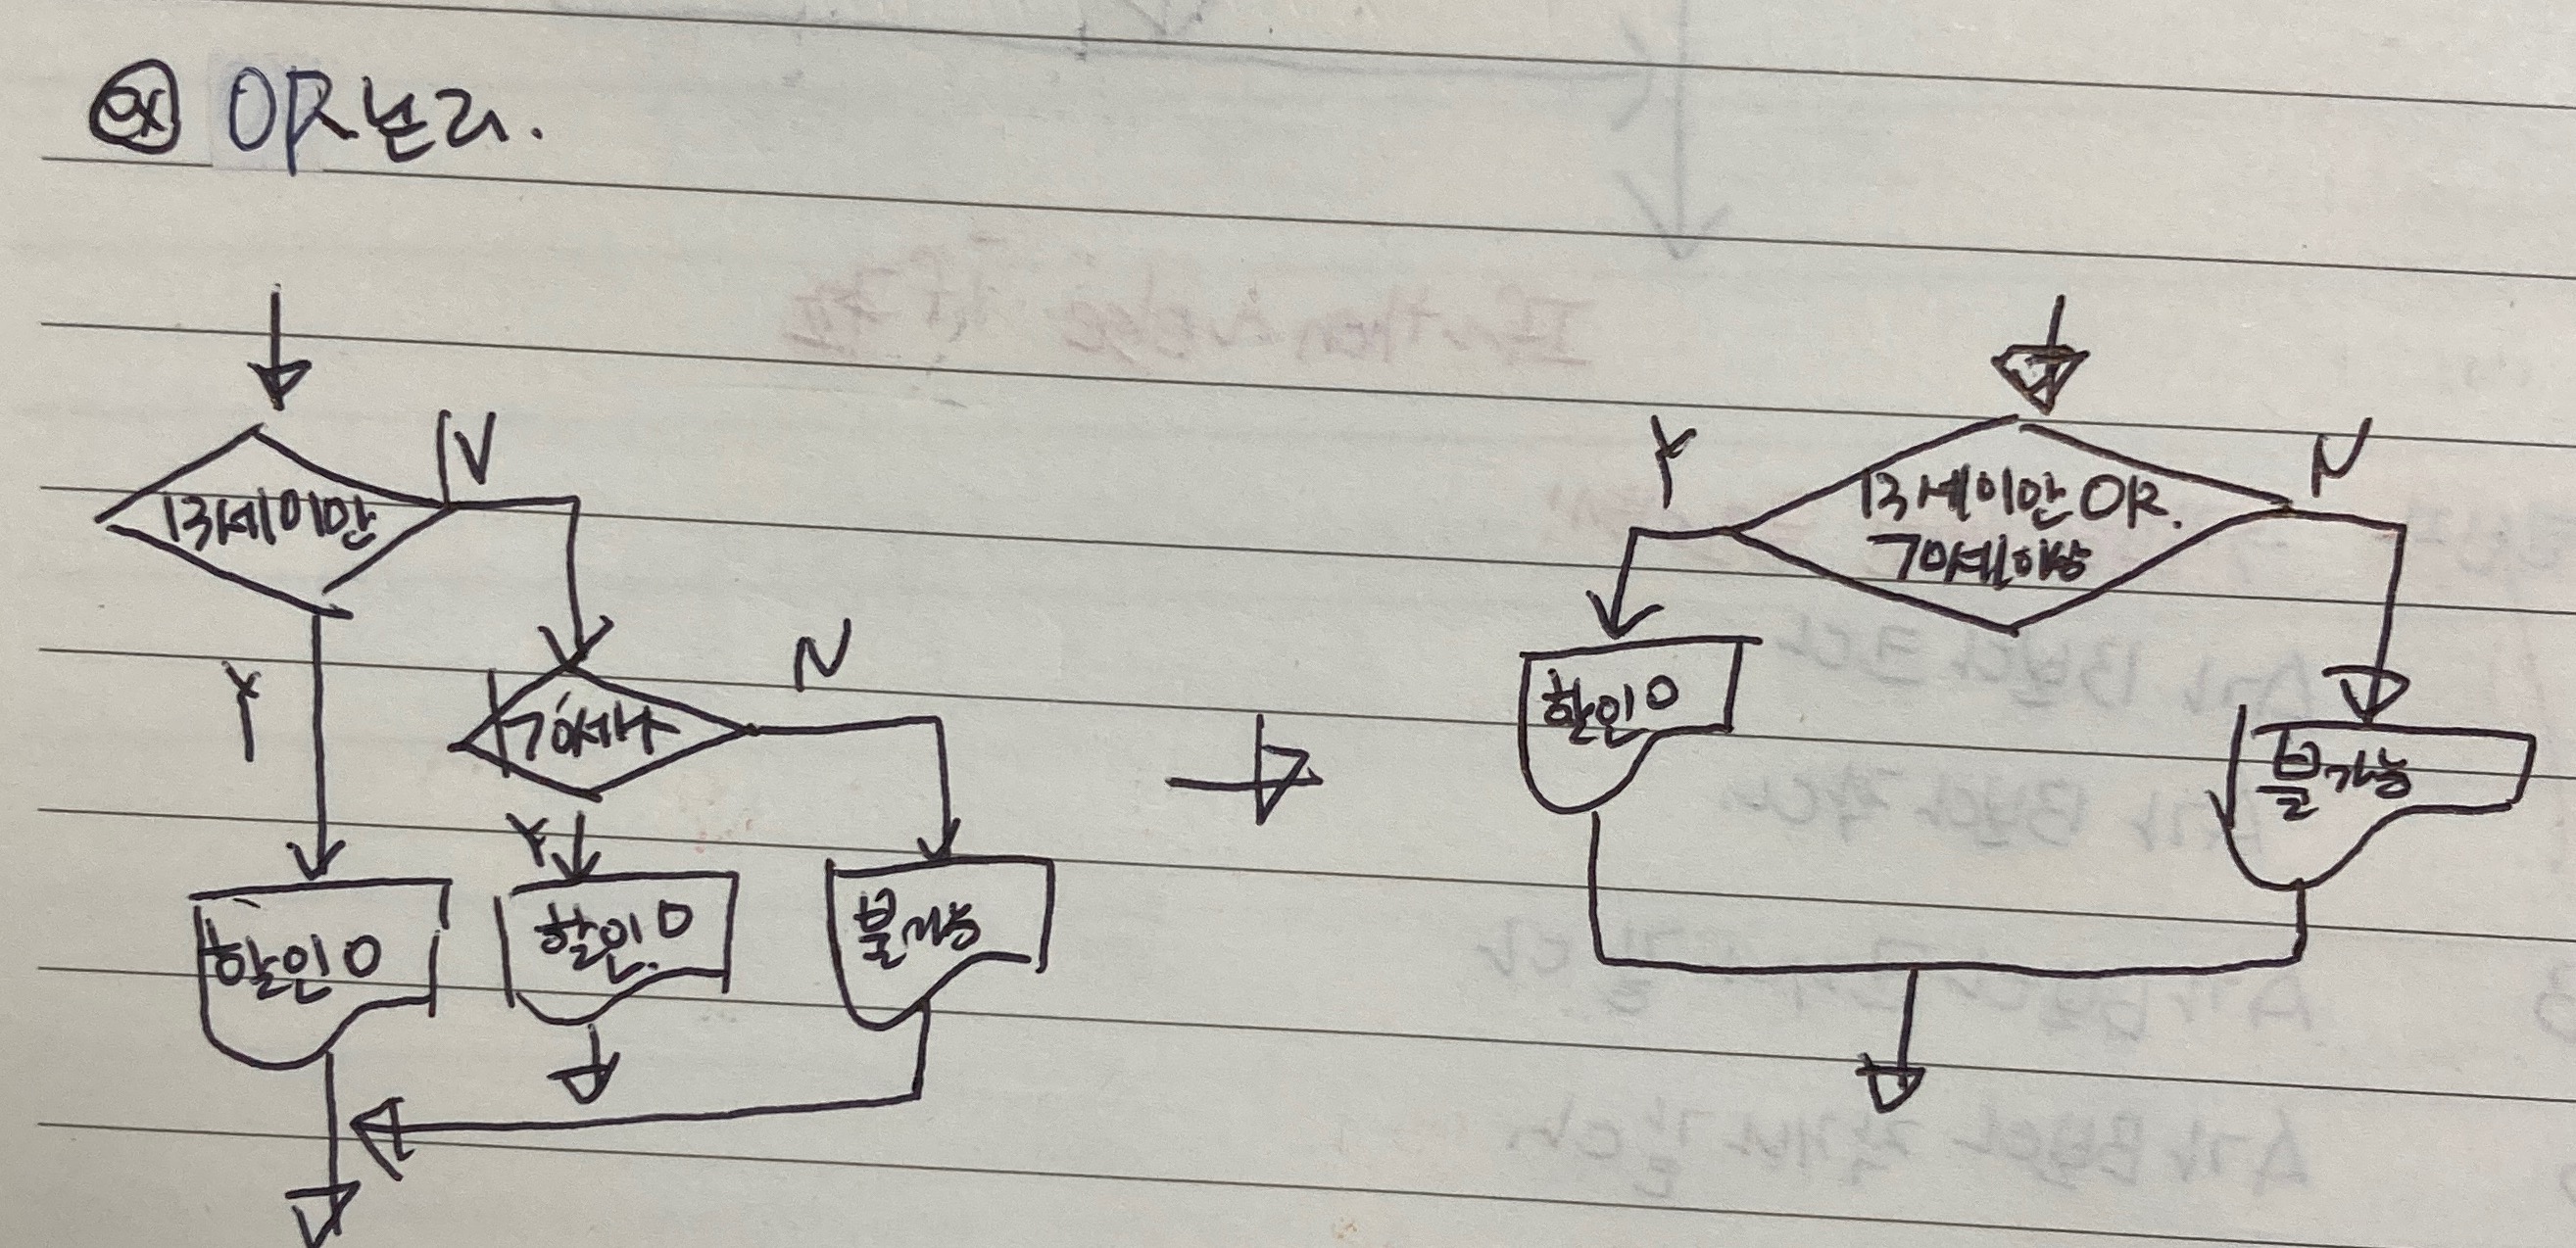 ex OR논리.
N
13세미만
Y
N
70세
Y
할인O
할인O
불가능
Y
N
13세미만 OR.
70세이상
할인O
불가능